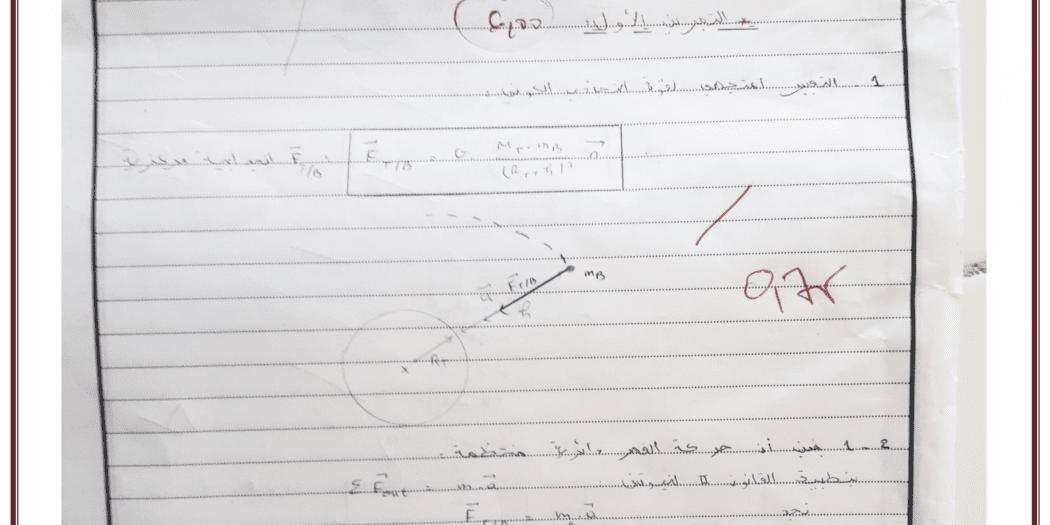 * التمرين الأول
1 - التعبير المتجهي لقوة التجاذب الكوني :
F⃗ T/B = G. M_T . m_B / (R_T + h)² n⃗ : F⃗ T/B
m_B
F⃗ T/B
u⃗
h
R_T
x
0,75
2 - 1 نبين أن حركة القمر دائرية منتظمة :
بتطبيق القانون II لنيوتن : Σ F⃗ ext = m.a⃗
نجد F⃗ T/B = m_B . a⃗